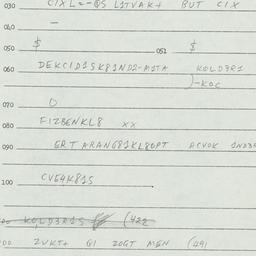 030 CIXL=-QS L1TVAK+ BUT CIX
040 -
050 $ 051 $
060 DEKCID1SK81ND2-A1TA KOLD3R1
)-KOC
070 O
080 FIZBENKL8 XX
090 GRTARANG81KL8OPT ACVOK
100 CVG4K81S
KOLD3R1S (422
00 ZVKT+ Q1 ZOGT MEN (491